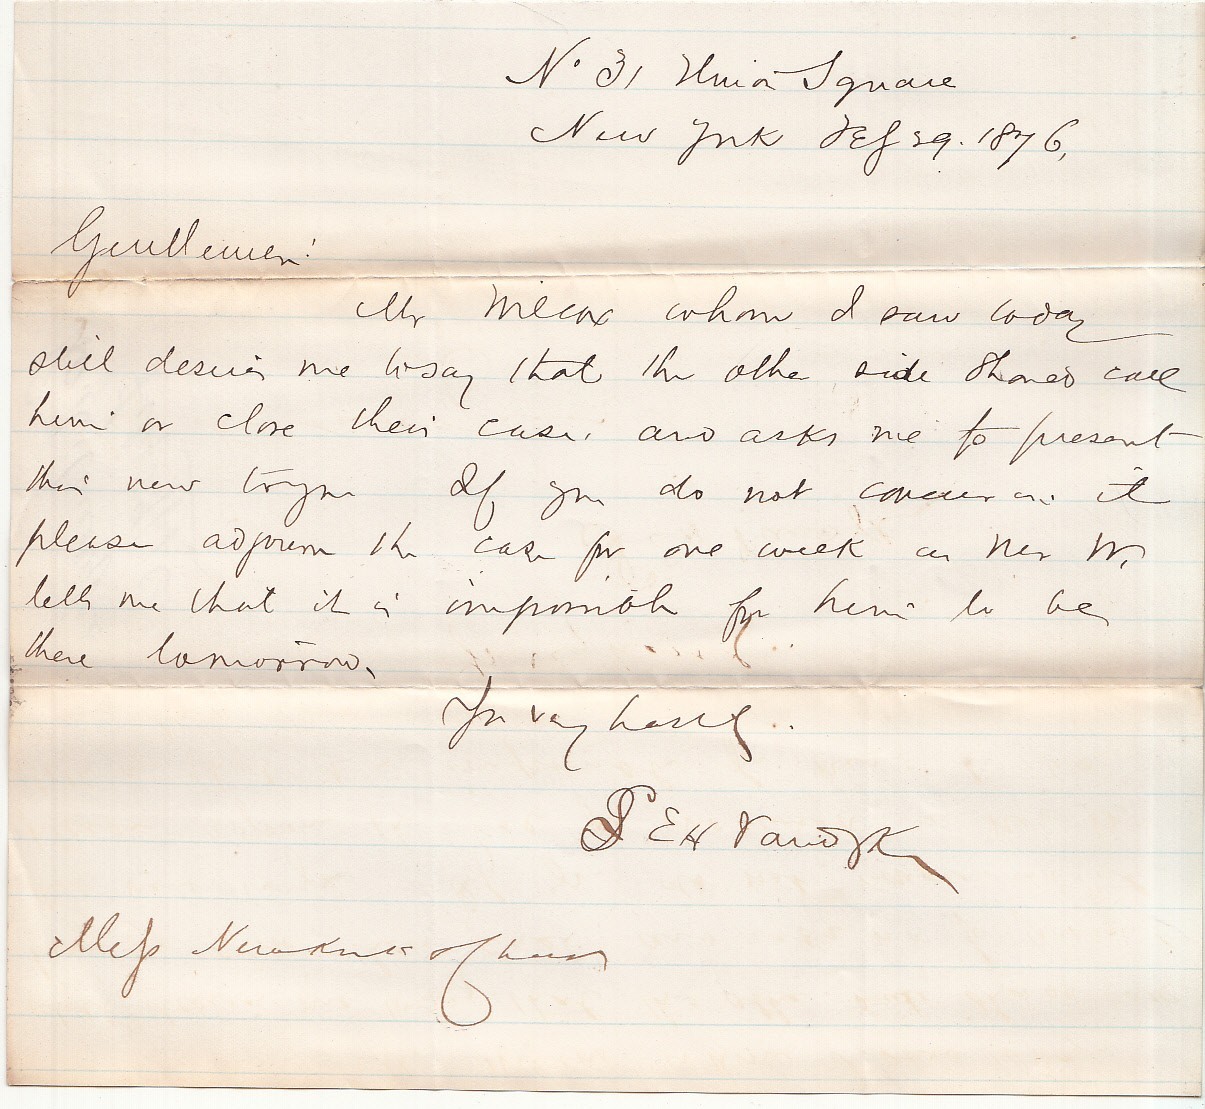 No. 31 Union Square
New York Feby 29. 1876,
Gentlemen:
Mr Wilcox whom I saw today
still desires me to say that the other side should call
him or close their case, and asks me to present
this view to you If you do not concur in it
please adjourn the case for one week as Mr W.
tells me that it is impossible for him to be
there tomorrow.
Yrs very
P E H Vandyk
Mess Newkirk &